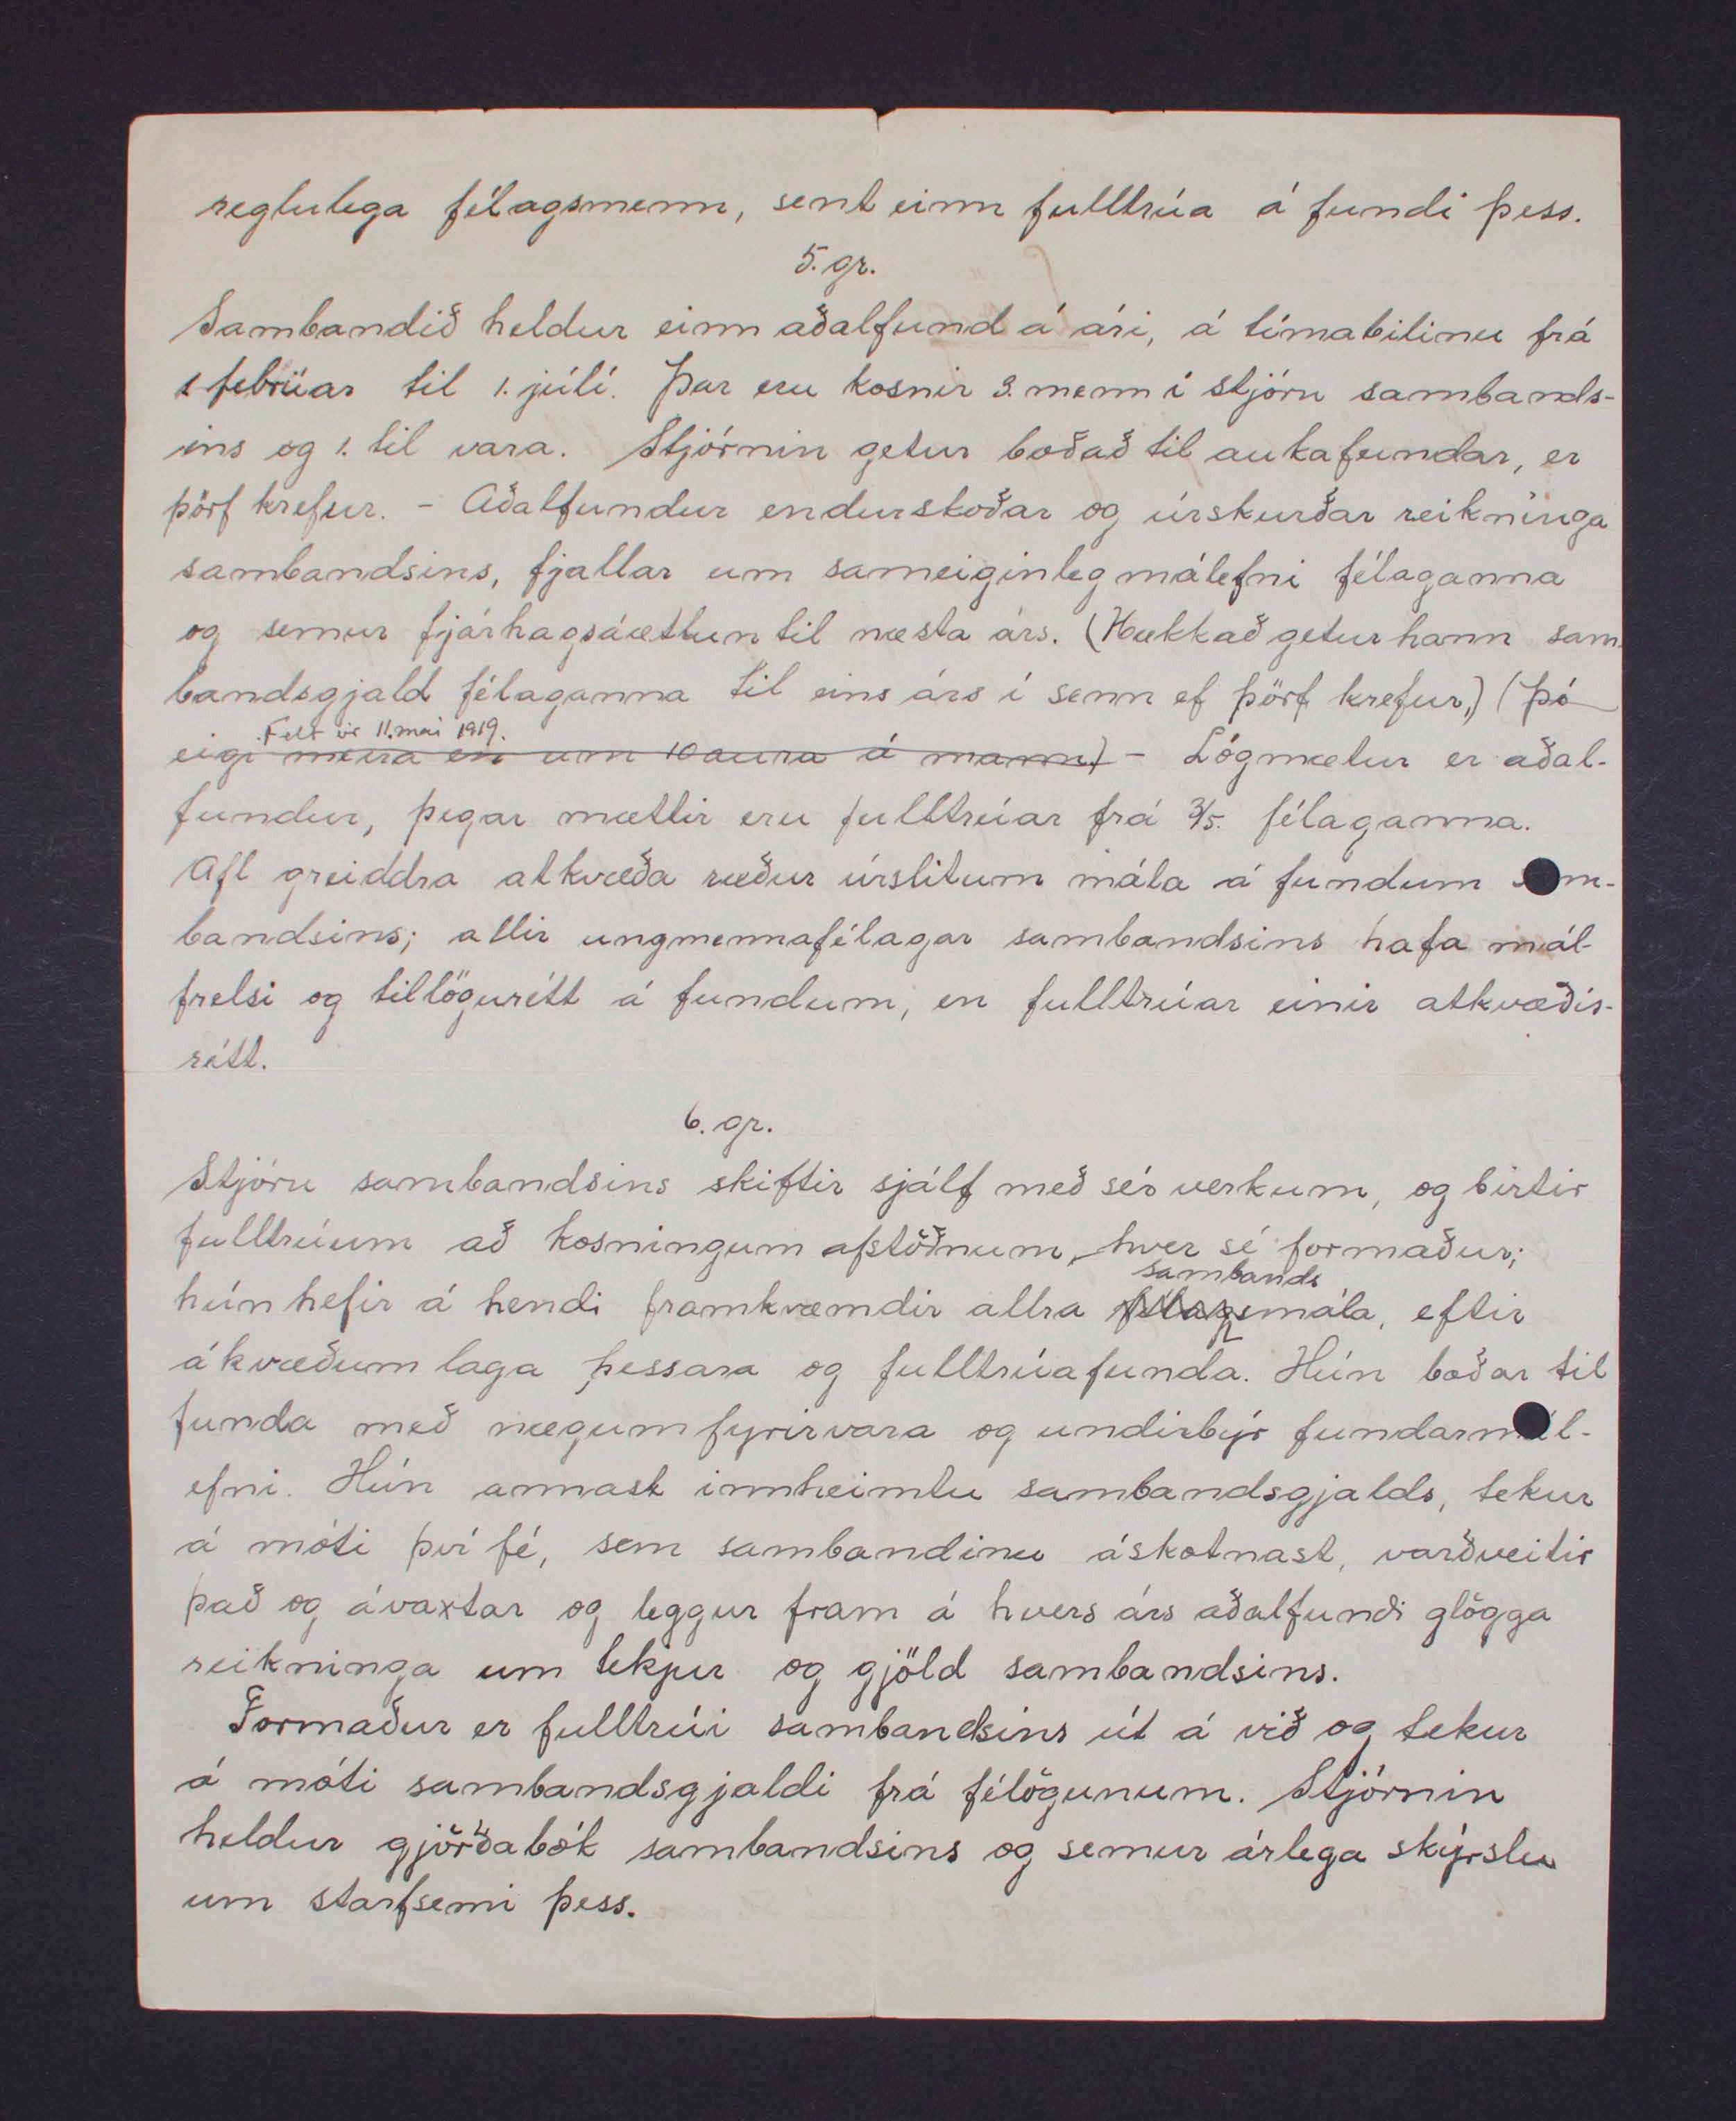 reglulega félagsmenn, sent einn fulltrúa á fundi þess.
5. gr.
Sambandið heldur einn aðalfund á ári, á tímabilinu frá
1 febrúar til 1. júlí. Þar eru kosnir 3. menn í stjórn sambands-
ins og 1. til vara. Stjórnin getur boðað til aukafundar, er
þörf krefur. - Aðalfundur endurskoðar og úrskurðar reikninga
sambandsins, fjallar um sameiginleg málefni félaganna
og semur fjárhagsáætlun til næsta árs. (Hækkað getur hann sam
bandsgjald félaganna til eins árs í senn ef þörf krefur,) (þó
Felt úr 11. maí 1919.
eigi meira en um 10 aura á mann) - Lögmætur er aðal-
fundur, þegar mættir eru fulltrúar frá 3/5. félaganna.
Afl greiddra atkvæða ræður úrslitum mála á fundum sam-
bandsins; allir ungmennafélagar sambandsins hafa mál-
frelsi og tillögurétt á fundum, en fulltrúar einir atkvæðis-
rétt.
6. gr.
Stjórn sambandsins skiftir sjálf með sér verkum, og birtir
fulltrúum að kosningum afstöðnum, hver sé formaður;
sambands
hún hefir á hendi framkvæmdir allra félagsmála, eftir
ákvæðum laga þessara og fulltrúafunda. Hún boðar til
funda með nægum fyrirvara og undirbýr fundarmál-
efni. Hún annast innheimtu sambandsgjalds, tekur
á móti því fé, sem sambandinu áskotnast, varðveitir
það og ávaxtar og leggur fram á hvers árs aðalfundi glögga
reikninga um tekjur og gjöld sambandsins.
Formaður er fulltrúi sambandsins út á við og tekur
á móti sambandsgjaldi frá félögunum. Stjórnin
heldur gjörðabók sambandsins og semur árlega skýrslu
um starfsemi þess.